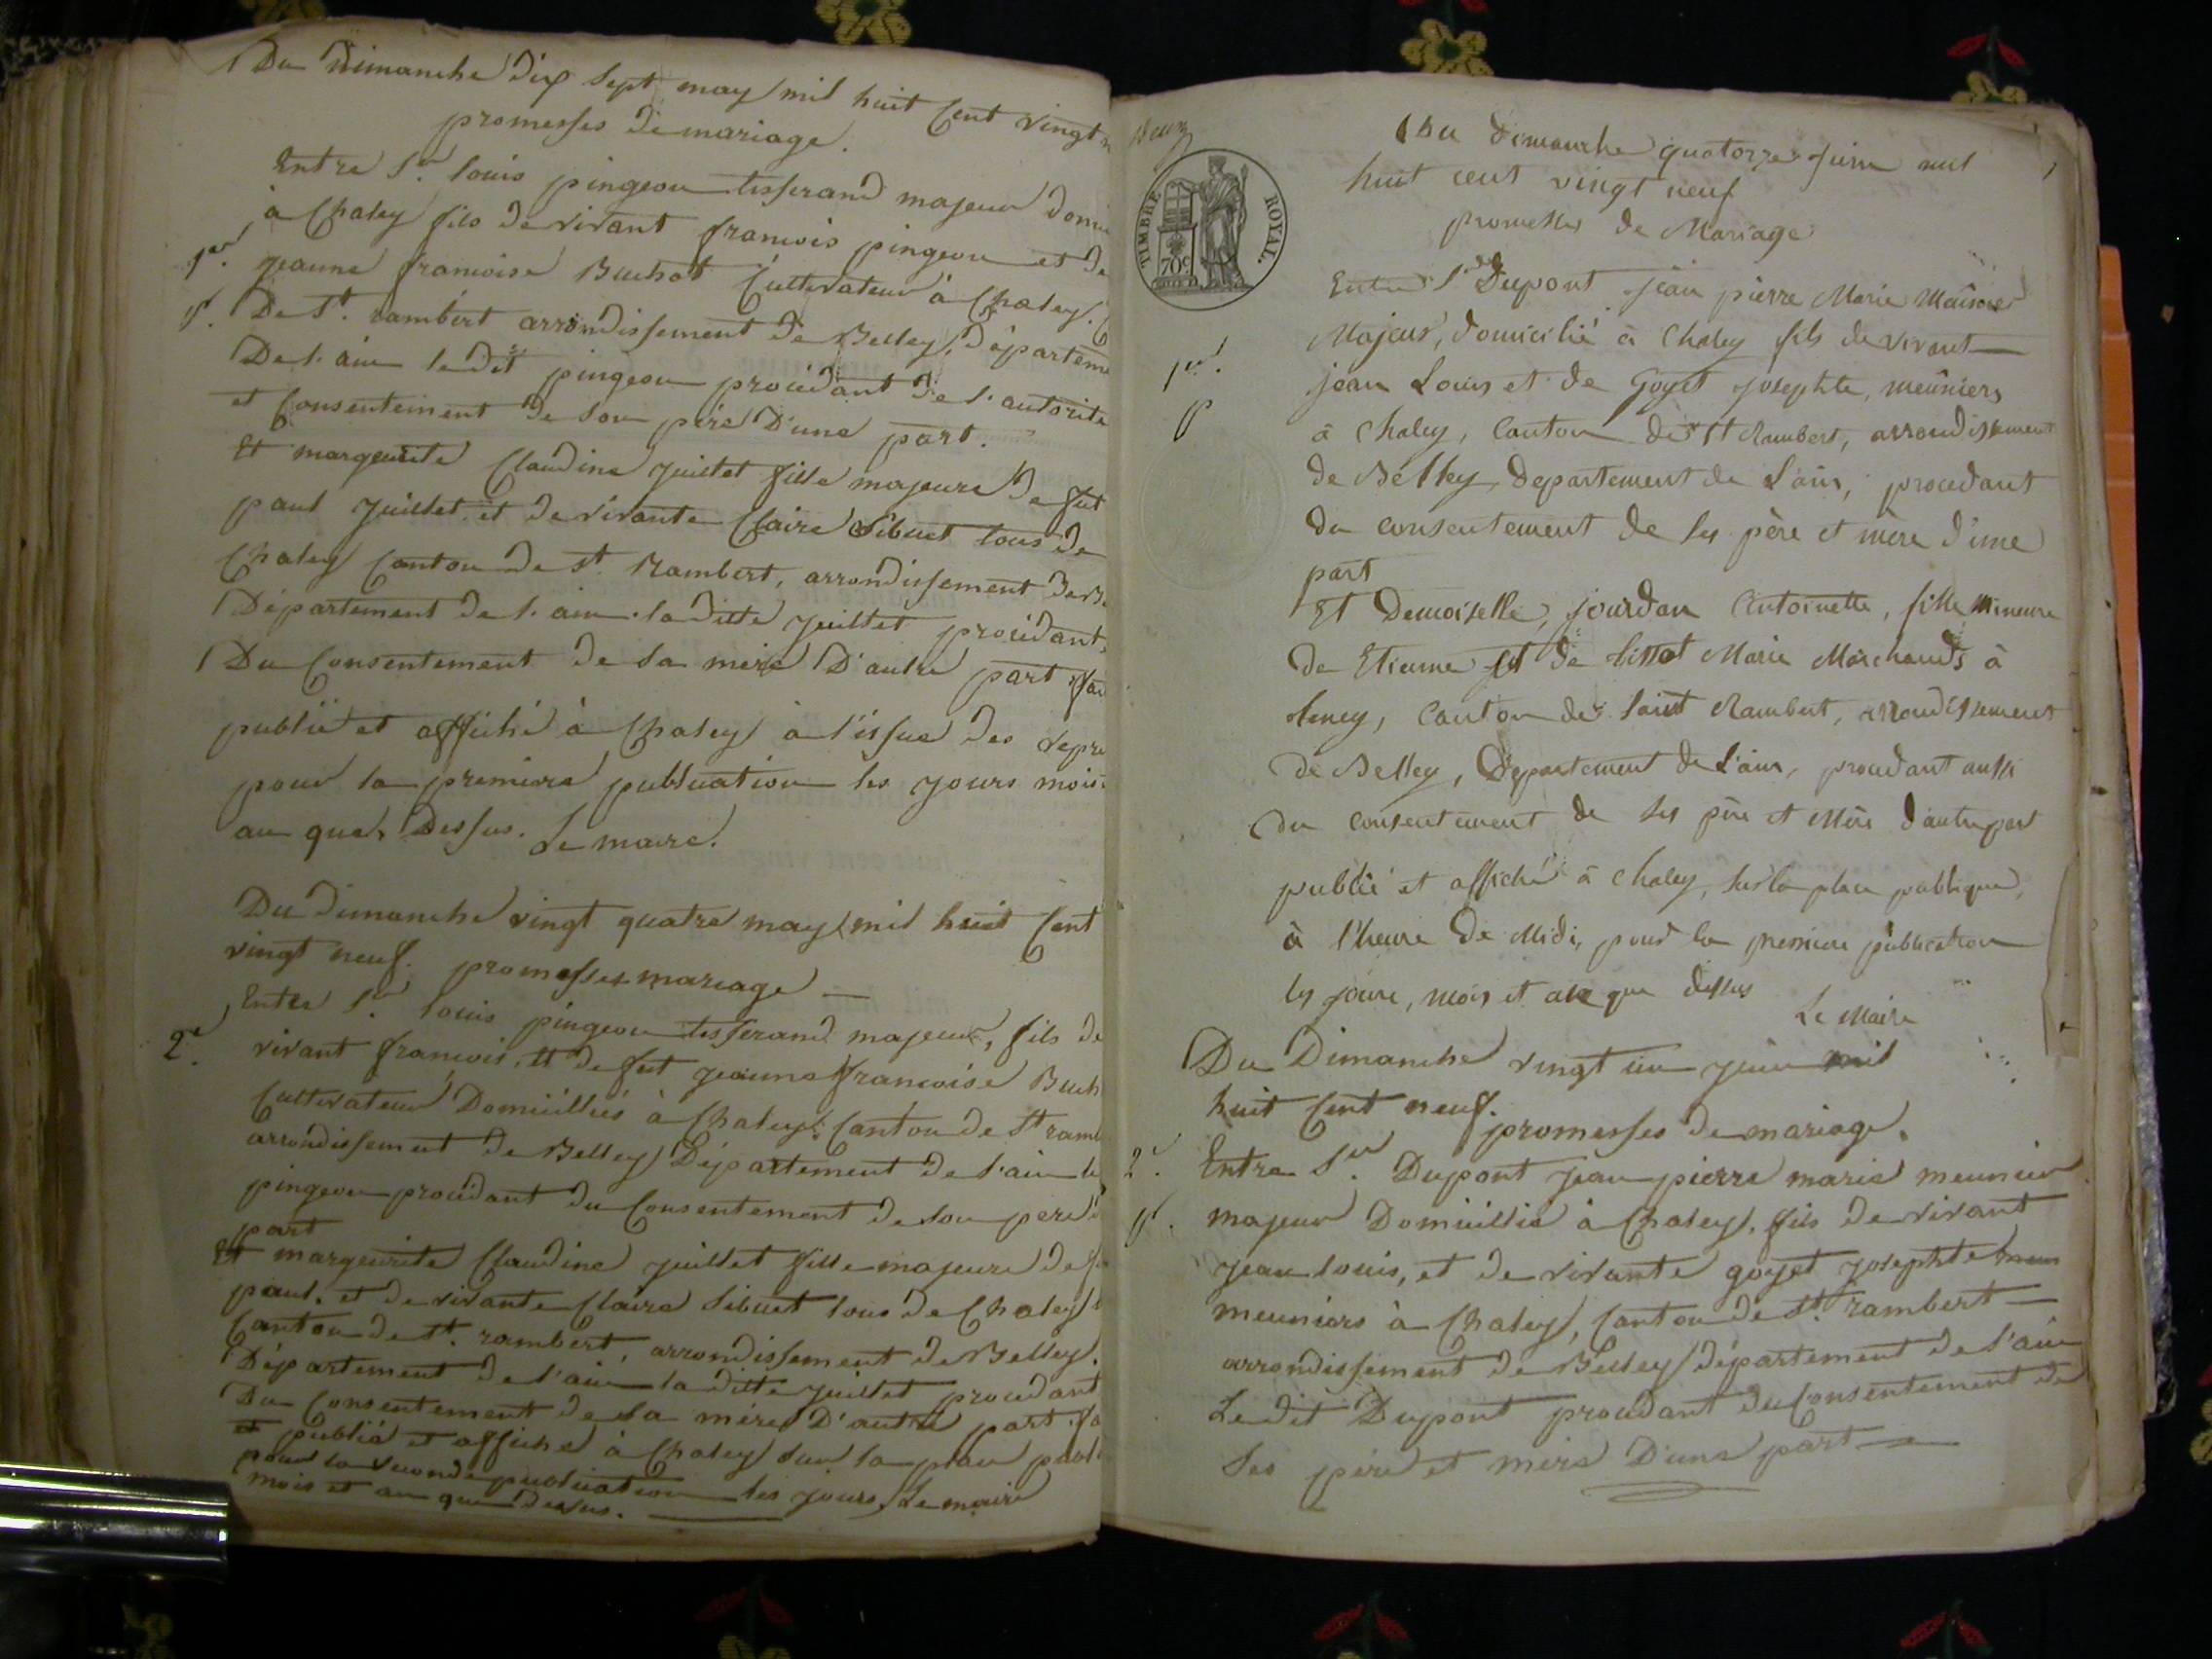 Du Dimanche dix sept may mil huit Cent vingt
promesses de mariage.
Entre Sr. louis pingeon tisserand majeur domi
à Chaley fils de vivant francois pingeon et de
1er.
jeanne francoise Buchot Cultivateur à Chaley. C
p. De St. rambert arrondissement de Belley, départeme
De l'ain le dit pingeon procédant de l'autorité
et Consentement de son père D'une part.
Et margeurite Claudine juillet fille majeure de fut
paul juillet et de vivante Claire Sibuet tous de
Chaley Canton de St. Rambert, arrondissement de Be
Département de l'ain. la ditte juillet procédant
Du Consentement de sa mère D'autre part fai
publié et affiché à Chaley à l'issue des vepre
pour la premiere publication les jours mois
an que, Dessus. Le maire.
Du dimanche vingt quatre may mil huit Cent
vingt neuf. promesses mariage —
Entre Sr. louis pingeon tisserand majeur, fils de
2e.
vivant francois, et de fut jeanne francoise Buch
Cultivateur Domicilliés à Chaley, Canton de St ramb
arrondissement de Belley Département de l'ain le
pingeon procédant du Consentement de son pere d
part
Et margeurite Claudine juillet fille majeure de f
paul, et de vivante Claire Sibuet tous de Chaley
Canton de St. rambert, arrondissement de Belley.
Département de l'ain la ditte juillet procedant
Du Consentement de sa mère D'autre part. fa
et publié et affiché à Chaley sur la place publi
pour la seconde publication les jours, Le maire
mois et an que dessus.
TIMBRE ROYAL.
70c
Du dimanche quatorze juin mil
huit cent vingt neuf
promesses de Mariage
Entre Sr Dupont jean pierre Marie Meûnier
Majeur, domicilié à Chaley fils de vivant
1er.
jean Louis et de Goyet josephte, meûniers
p
à Chaley, Canton de St Rambert, arrondissement
de Belley, departement de l'ain, procedant
du consentement de ses père et mère d'une
part
Et Demoiselle, jourdan Antoinette, fille mineure
de Etienne et de tissot Marie Marchands à
tenay, Canton de Saint Rambert, arrondissement
de Belley, Département de l'ain, procedant aussi
du consentement de ses père et Mère d'autre part
publié et affiché à Chaley, sur la place publique,
à l'heure de Midi, pour la premiere publication
les jour, mois et an que dessus
Le Maire
Du Dimanche vingt un juin mil
huit Cent neuf.
promesses de mariage.
2e. Entre Sr. Dupont jean pierre marie meunier
p. majeur Domicillié à Chaley. fils de vivant
jean louis, et de vivante goyet josephte meun
meuniers à Chaley, Canton de St. rambert —
arrondissement de Belley département de l'ain
Le dit Dupont procedant du Consentement de
Ses père et mère D'une part